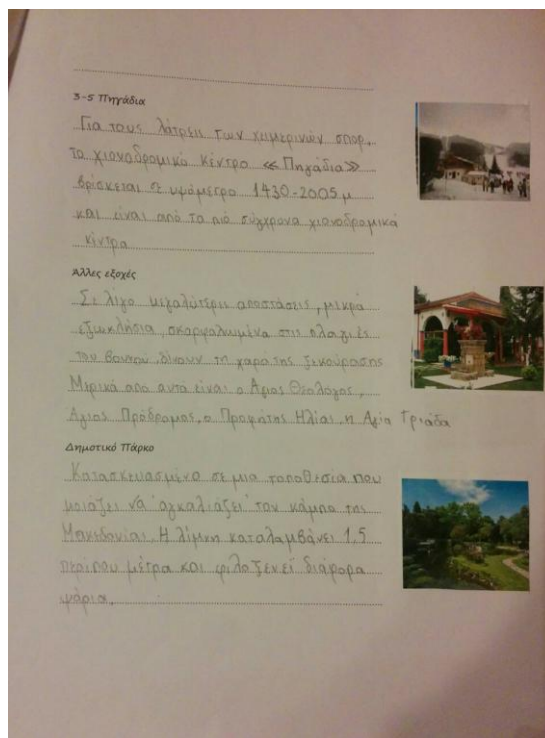 3-5 Πηγάδια
Για τους λάτρεις των χειμερινών σπορ,
το χιονοδρομικό κέντρο «Πηγάδια»
βρίσκεται σε υψόμετρο 1430-2005 μ
και είναι από τα πιό σύγχρονα χιονοδρομικά
κέντρα
Άλλες εξοχές
Σε λίγο μεγαλύτερες αποστάσεις, μικρά
εξωκλήσια, σκαρφαλωμένα στις πλαγιές
του βουνού δίνουν τη χαρά της ξεκούρασης
Μερικά από αυτά είναι ο Άγιος Θεολόγος,
Άγιος Πρόδρομος, ο Προφήτης Ηλίας, η Αγία Τριάδα
Δημοτικό Πάρκο
Κατασκευασμένο σε μια τοποθεσία που
μοιάζει να αγκαλιάζει τον κάμπο της
Μακεδονίας. Η λίμνη καταλαμβάνει 1,5
περίπου μέτρα και φιλοξενεί διάφορα
ψάρια.